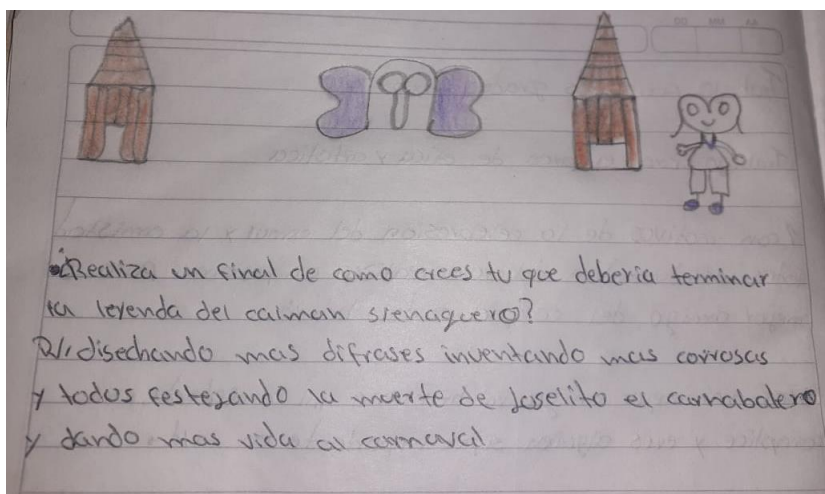 ¿Realiza un final de como crees tu que deberia terminar
la leyenda del caiman sienaguero?
R// disechando mas difrases inventando mas corrosas
y todos festejando la muerte de Joselito el carnabalero
y dando mas vida al carnaval